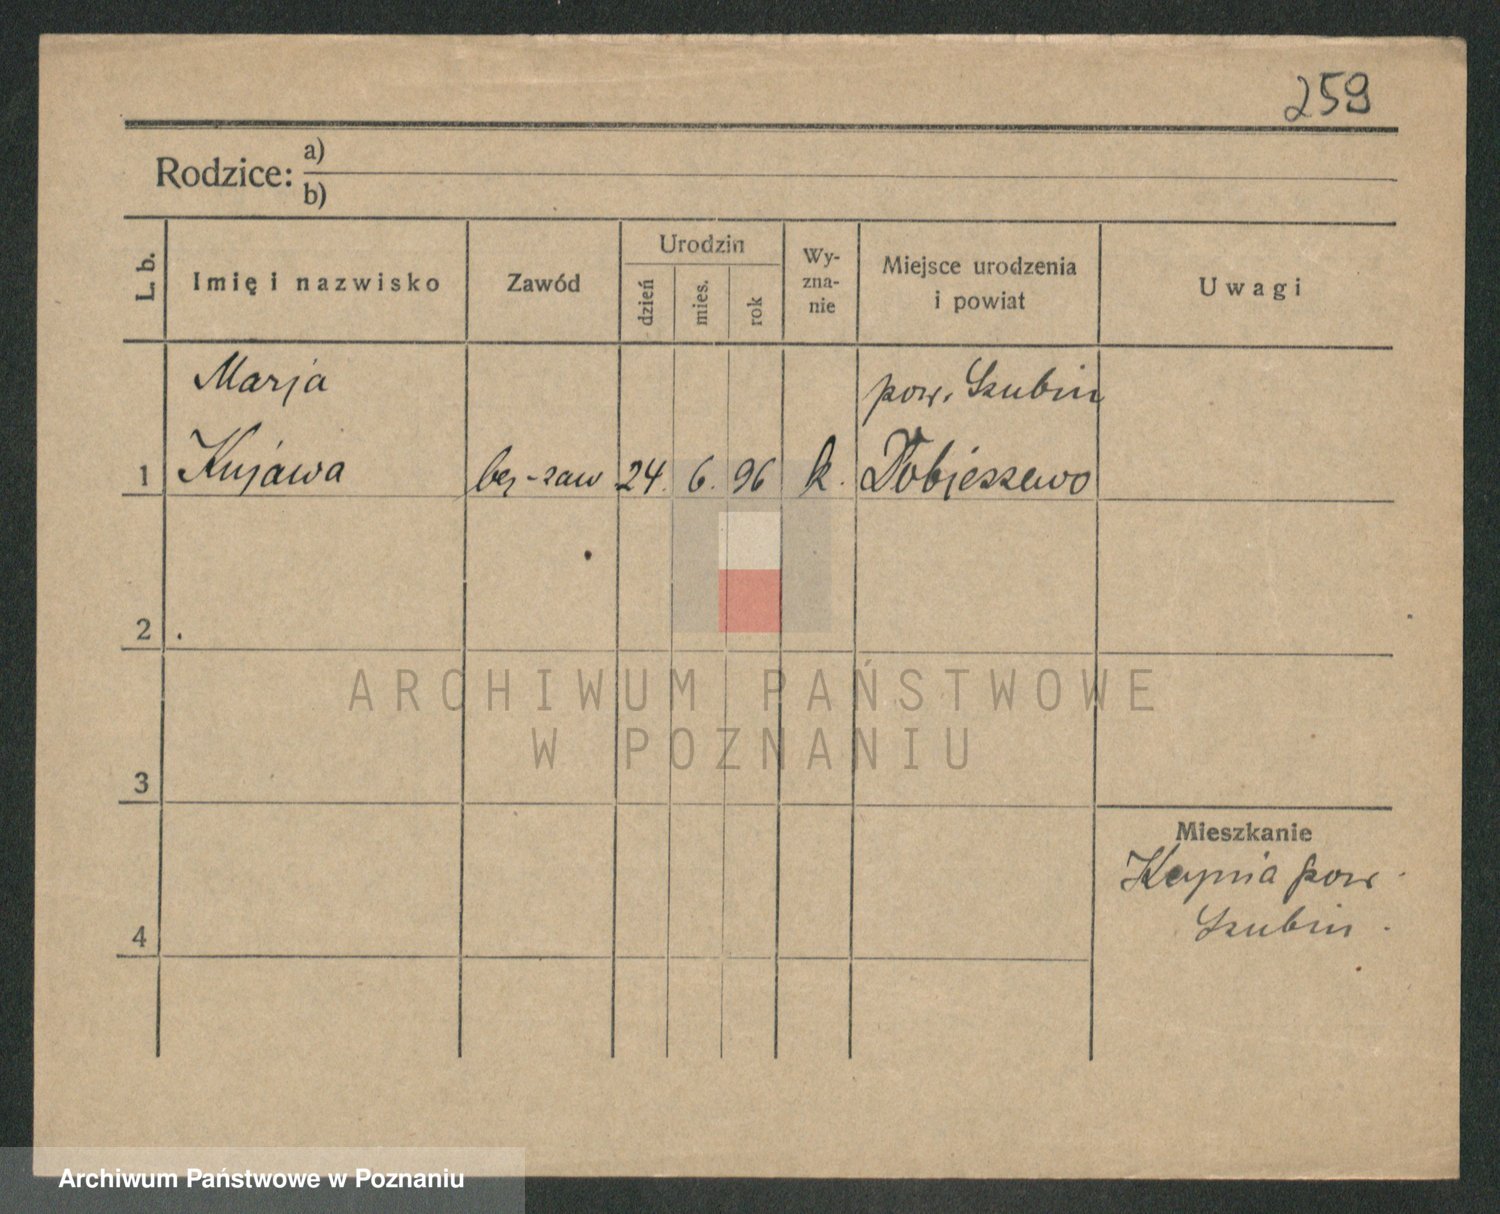 259
Rodzice: a)
b)
L. b.
Imię i nazwisko
Zawód
Urodzin
dzień
mies.
rok
Wy-
zna-
nie
Miejsce urodzenia
i powiat
Uwagi
Marja
pow. Szubin
1 Kujawa bez-zaw 24. 6. 96 k. Tobjeszewo
2
3
4
Mieszkanie
Kcynia pow.
Szubin.
ARCHIWUM PAŃSTWOWE
W POZNANIU
Archiwum Państwowe w Poznaniu